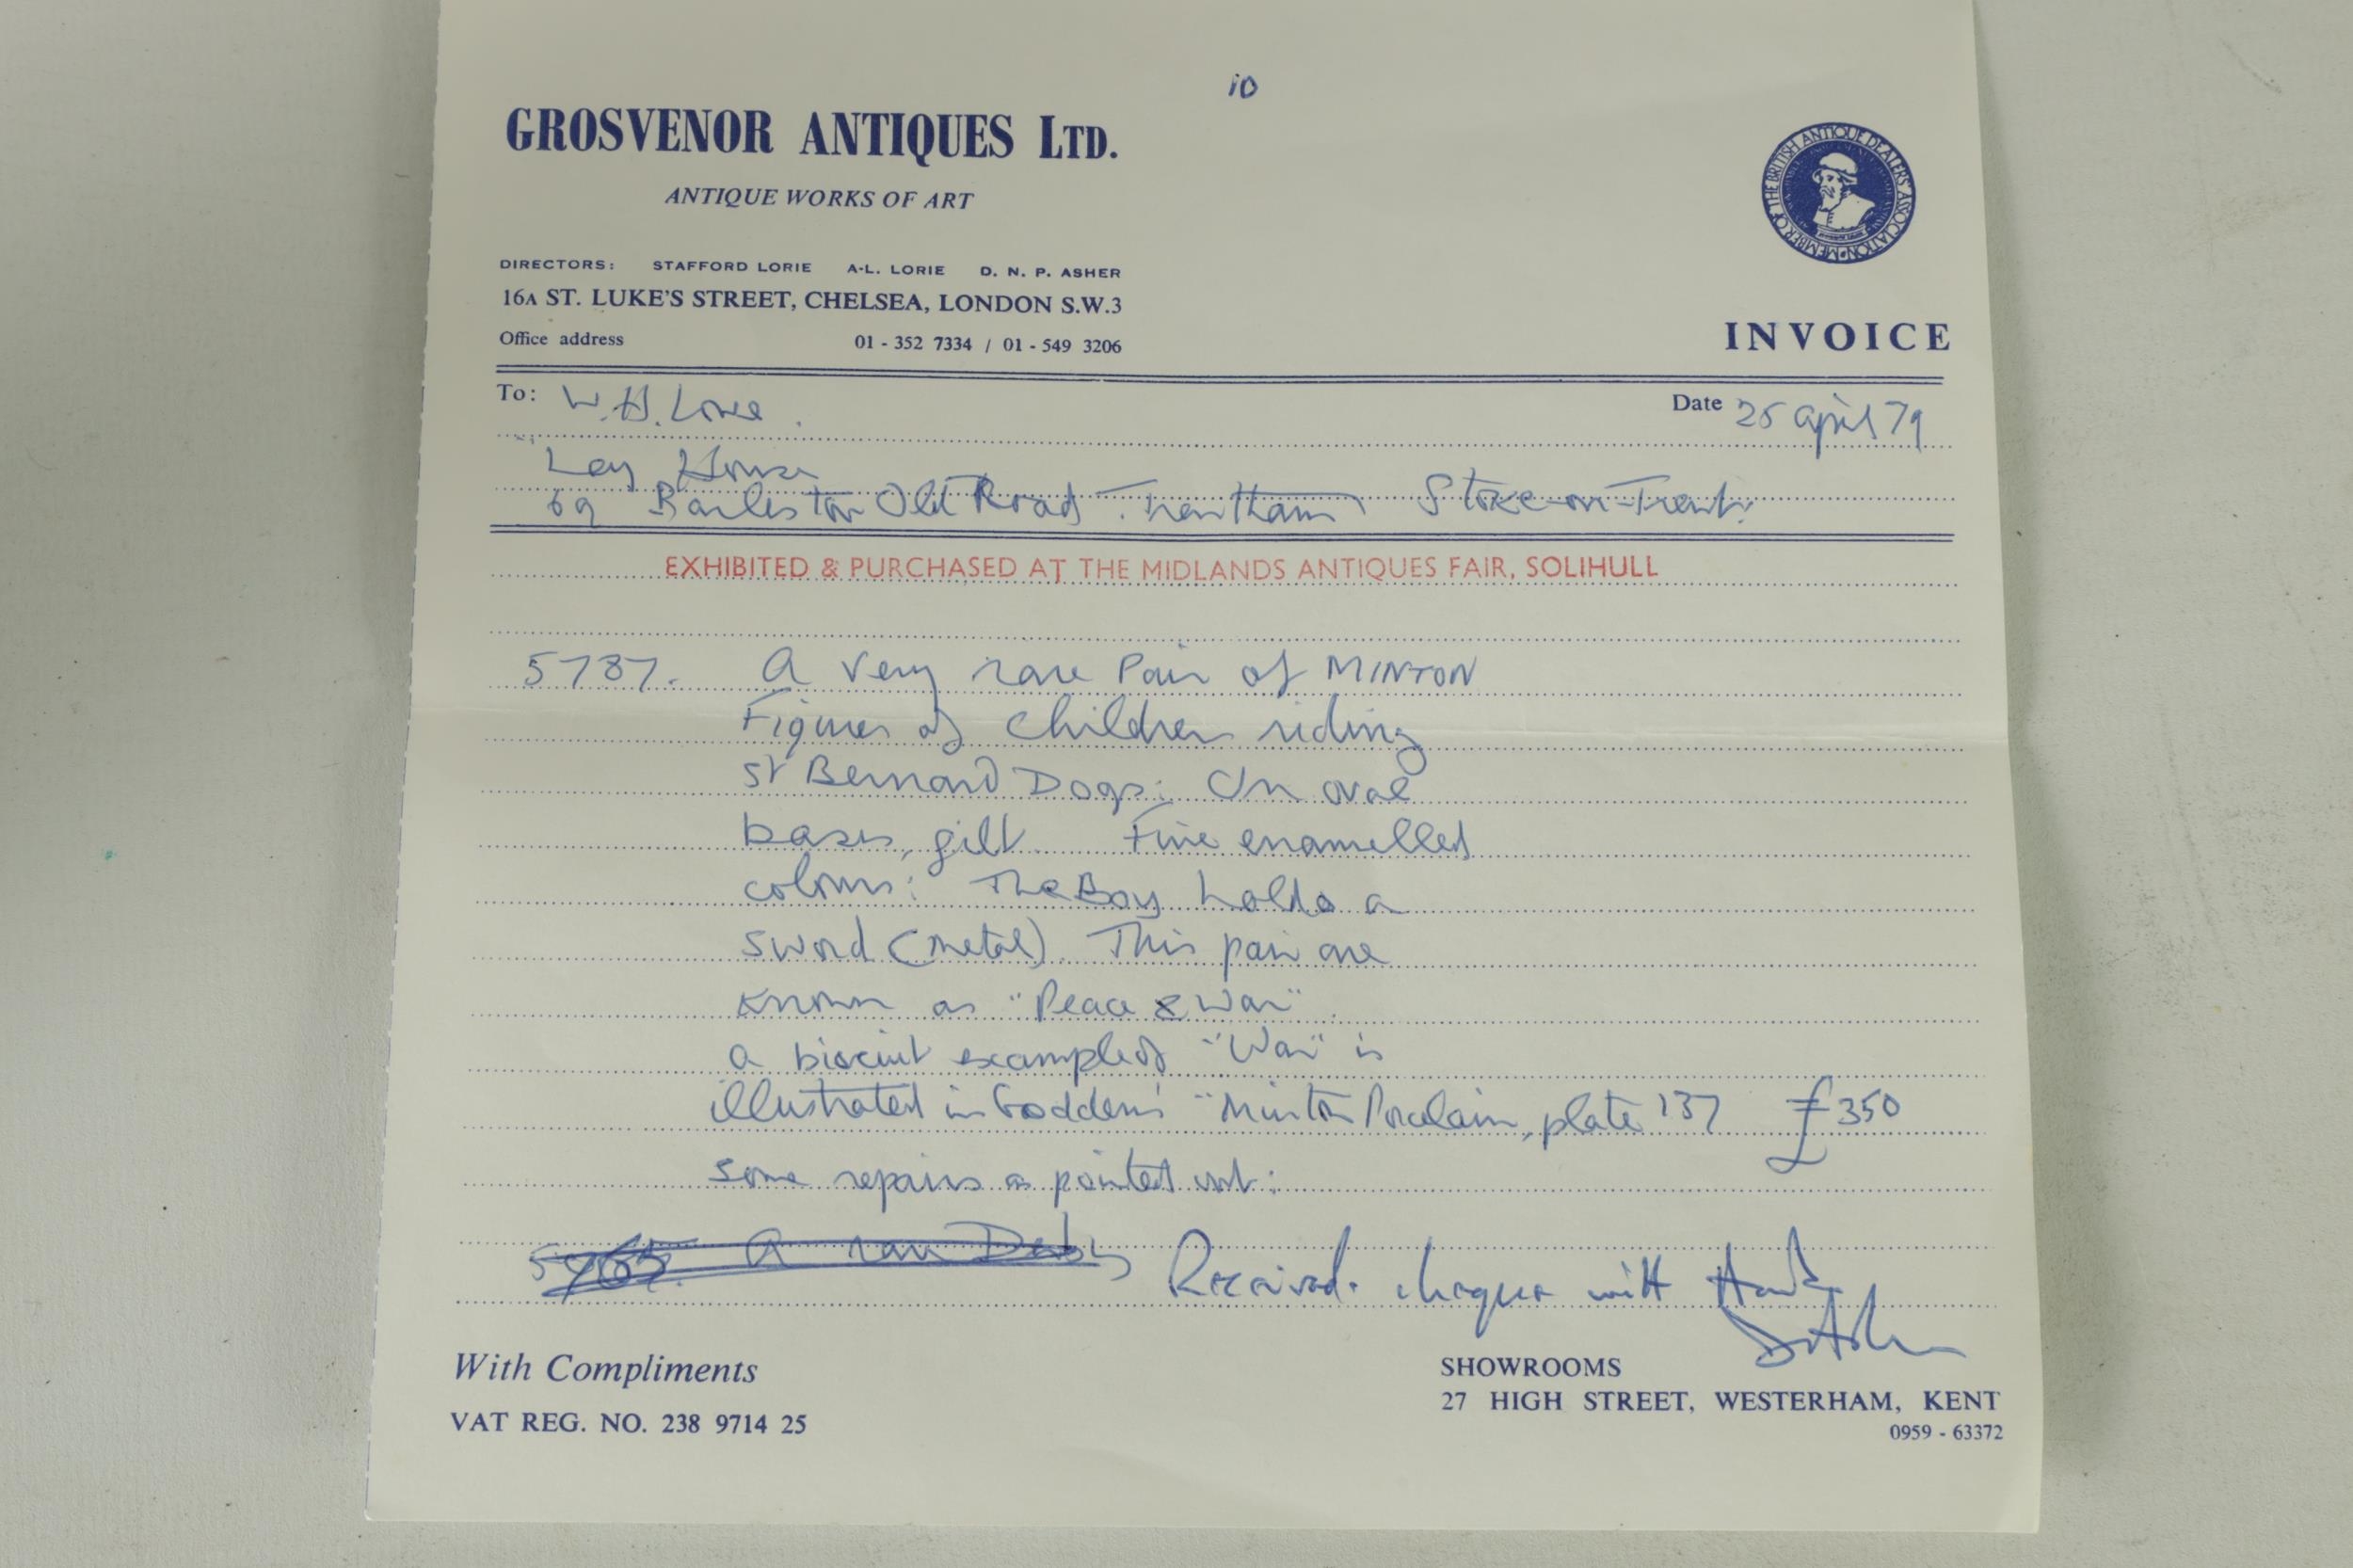 10
GROSVENOR ANTIQUES LTD.
ANTIQUE WORKS OF ART
MEMBER OF THE BRITISH ANTIQUE DEALERS' ASSOCIATION
DIRECTORS: STAFFORD LORIE A-L. LORIE D. N. P. ASHER
16A ST. LUKE'S STREET, CHELSEA, LONDON S.W.3
Office address 01 - 352 7334 / 01 - 549 3206
INVOICE
To: W.H. Lowe.
Date 25 April 79
Ley House
69 Barlaston Old Road Trentham Stoke-on-Trent.
EXHIBITED & PURCHASED AT THE MIDLANDS ANTIQUES FAIR, SOLIHULL
5787. A Very rare Pair of MINTON
Figures of children riding
St Bernard Dogs: On oval
bases, gilt. Fine enamelled
colours: The Boy holds a
sword (metal). This pair are
known as "Peace & War".
a biscuit example of "War" is
illustrated in Goddens' "Minton Porcelain, plate 137 £350
some repairs as pointed out:
A rare Derby
Received cheque with Thanks
D Asher
With Compliments
VAT REG. NO. 238 9714 25
SHOWROOMS
27 HIGH STREET, WESTERHAM, KENT
0959 - 63372